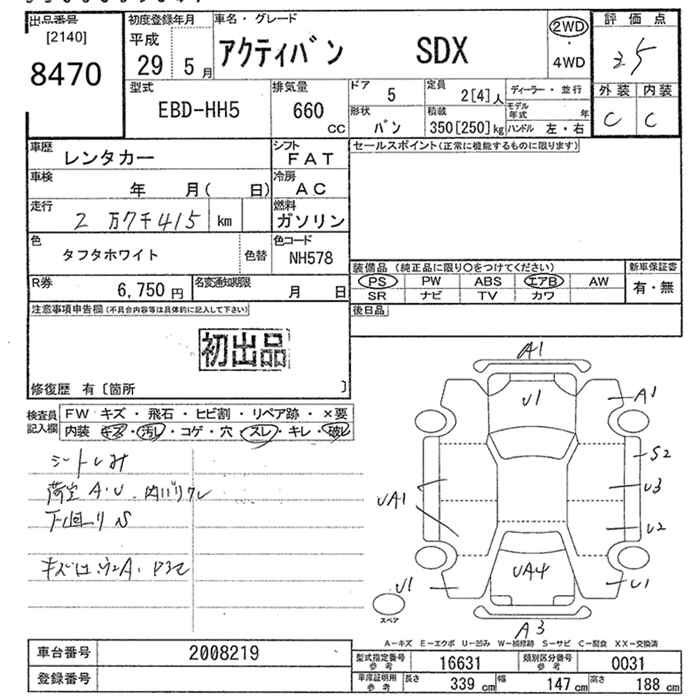 出品番号
[2140]
8470
初度登録年月
平成
29 5月
車名・グレード
アクティバン SDX
2WD
・
4WD
評価点
外装 内装
C C
型式
EBD-HH5
排気量
660
CC
ドア
5
形状
バン
定員
2[4]人
積載
350[250]kg
ディーラー・並行
モデル年式 年
ハンドル 左・右
車歴
レンタカー
シフト
FAT
車検
年 月( 日)
冷房
AC
走行
2万7千415 km
燃料
ガソリン
色
タフタホワイト
色替
色コード
NH578
R券
6,750円
名変通知期限
月 日
セールスポイント(正常に機能するものに限ります)
装備品 (純正品に限り○をつけてください)
PS PW ABS エアB AW
SR ナビ TV カワ
新車保証書
有・無
後日品
注意事項申告欄(不具合内容等は具体的に記入して下さい)
初出品
修復歴 有〔箇所 〕
検査員記入欄
FW キズ・飛石・ヒビ割・リペア跡・×要
内装 キズ・汚レ・コゲ・穴・スレ・キレ・破レ
シートしみ
荷室 A・U
下回り S
A1
U1
A1
S2
U3
UA1
U2
UA4
U1
U1
スペア
A3
A−キズ E−エクボ U−凹み W−補修跡 S−サビ C−腐食 XX−交換済
車台番号
2008219
登録番号
型式指定番号
参考
16631
類別区分番号
参考
0031
車庫証明用
参考
長さ 339cm 幅 147cm 高さ 188cm